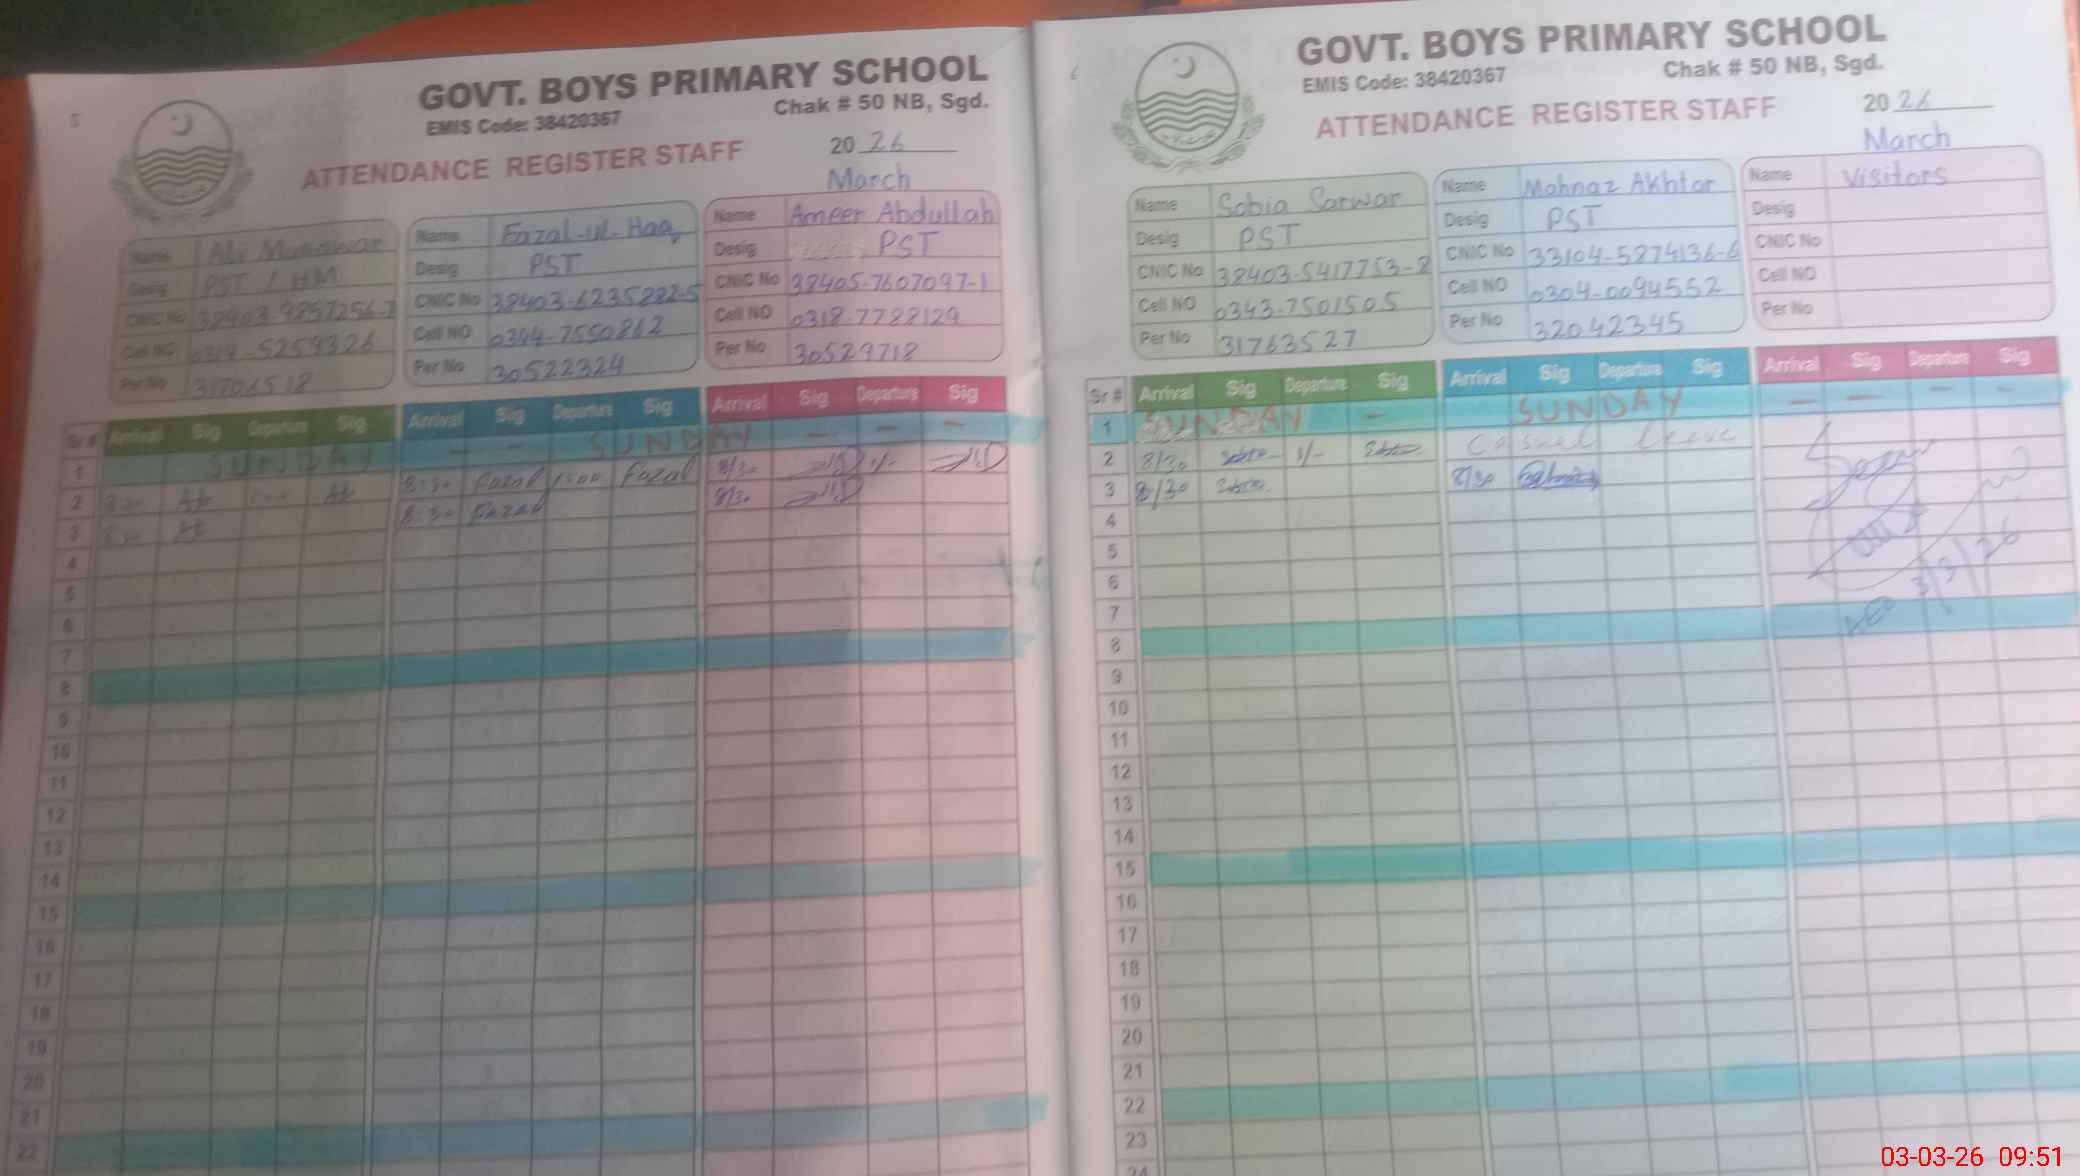 5
GOVT. BOYS PRIMARY SCHOOL
EMIS Code: 38420367
Chak # 50 NB, Sgd.
ATTENDANCE REGISTER STAFF
20 26
March
Name Ali Munawar
Desig PST / HM
CNIC No 38403-9857256-7
Cell NO 0314-5259326
Per No
Name Fazal-ul-Haq
Desig PST
CNIC No 38403-6235882-5
Cell NO 0344-7550862
Per No 30522324
Name Ameer Abdullah
Desig PST
CNIC No 38405-7607097-1
Cell NO 0318-7788129
Per No 30529718
Sr # Arrival Sig Departure Sig Arrival Sig Departure Sig Arrival Sig Departure Sig
1 SUNDAY - - SUNDAY - - -
2 8:30 Fazal 1:00 Fazal 8/30 1/-
3 8:30 Fazal 8/30
4
5
6
7
8
9
10
11
12
13
14
15
16
17
18
19
20
21
22
6
GOVT. BOYS PRIMARY SCHOOL
EMIS Code: 38420367
Chak # 50 NB, Sgd.
ATTENDANCE REGISTER STAFF
20 26
March
Name Sobia Sarwar
Desig PST
CNIC No 38403-5417753-8
Cell NO 0343-7501505
Per No 31763527
Name Mahnaz Akhtar
Desig PST
CNIC No 33104-5874136-6
Cell NO 0304-0094552
Per No 32042345
Name Visitors
Desig
CNIC No
Cell NO
Per No
Sr # Arrival Sig Departure Sig Arrival Sig Departure Sig Arrival Sig Departure Sig
1 SUNDAY - SUNDAY - - - -
2 8/30 1/- Casual Leave
3 8/30 8/30
4
5
6
3/3/26
7
8
9
10
11
12
13
14
15
16
17
18
19
20
21
22
23
24
03-03-26 09:51